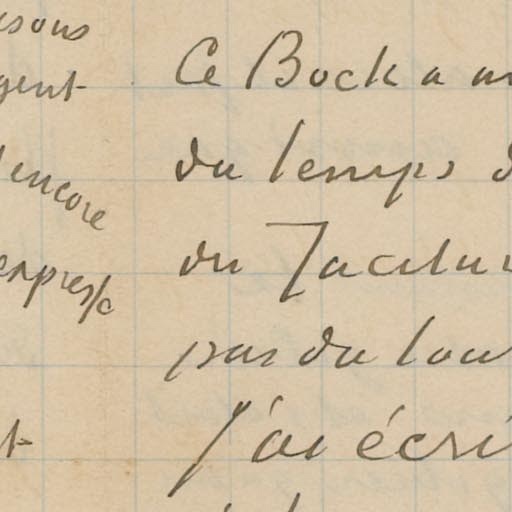 isons
gent
encore
expresse
t
Ce Bock a
du temps d
du Tacitu
pas du tou
J'ai écri